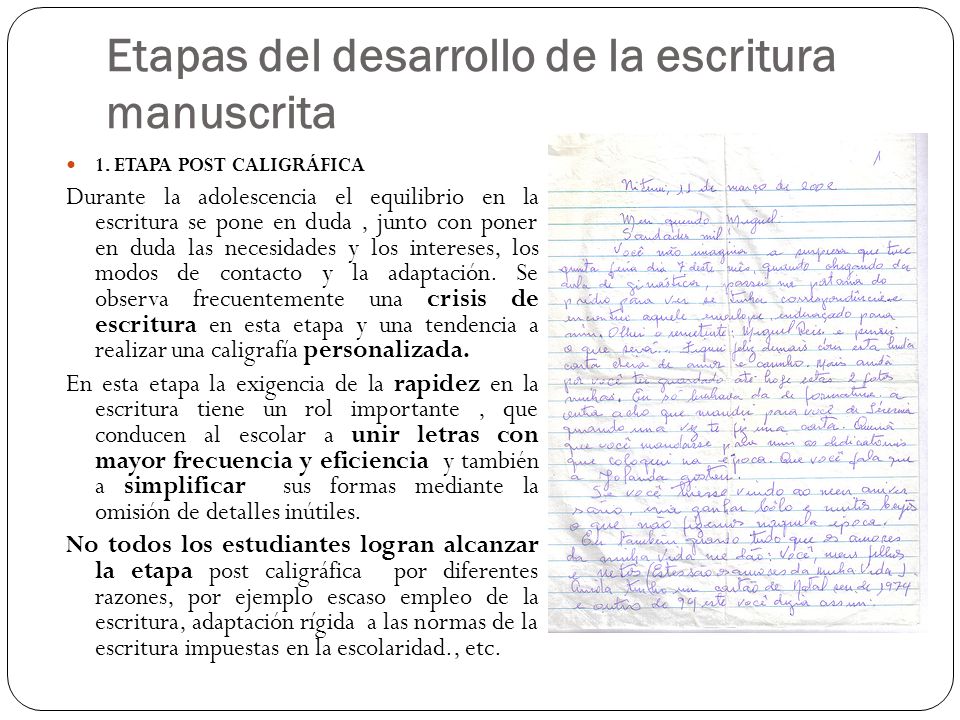 Etapas del desarrollo de la escritura
manuscrita
1. ETAPA POST CALIGRÁFICA
Durante la adolescencia el equilibrio en la
escritura se pone en duda , junto con poner
en duda las necesidades y los intereses, los
modos de contacto y la adaptación. Se
observa frecuentemente una crisis de
escritura en esta etapa y una tendencia a
realizar una caligrafía personalizada.
En esta etapa la exigencia de la rapidez en la
escritura tiene un rol importante , que
conducen al escolar a unir letras con
mayor frecuencia y eficiencia y también
a simplificar sus formas mediante la
omisión de detalles inútiles.
No todos los estudiantes logran alcanzar
la etapa post caligráfica por diferentes
razones, por ejemplo escaso empleo de la
escritura, adaptación rígida a las normas de la
escritura impuestas en la escolaridad., etc.
1
11 de março de 2002
Meu querido Miguel
Saudades mil!
Você não imagina a surpresa que tive
quinta feira dia 7 deste mês, quando chegando da
aula de ginástica, passei na portaria do
prédio para ver se tinha correspondência e
encontrei aquele envelope, endereçado para
mim. Olhei o remetente: Miguel Reis e pensei
o que será... Fiquei feliz demais com esta linda
carta cheia de amor e carinho. Mais ainda
por você ter guardado até hoje estas 2 fotos
minhas. Eu só lembrava da de formatura. a
outra acho que mandei para você da
quando uma vez te fiz uma carta. Queria
que você mandasse para mim as dedicatórias
que coloquei na época. Que você fala que
a Jolanda gostou.
Se você tivesse vindo ao meu aniver
sário, iria ganhar bôlo e muitos beijos
o que não fizemos naquela época.
Eu também guardo tudo que os amores
da minha vida me dão: Você, meus filhos
e netos (Estes são os amores da minha vida)
Ainda tenho um cartão de Natal seu de 1974
e outros de 94 este você dizia assim: